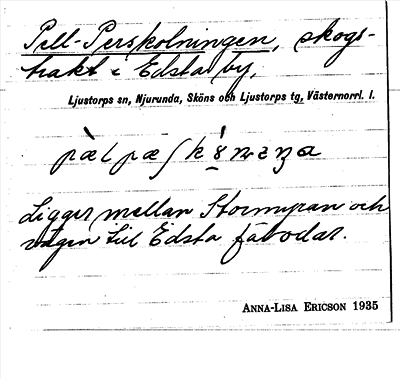 Pell-Perskolningen, skogs-
trakt i Edsta by.
Ljustorps sn, Njurunda, Sköns och Ljustorps tg, Västernorrl. l.
Ligger mellan Stormyran och
vägen till Edsta fäbodar.
ANNA-LISA ERICSON 1935